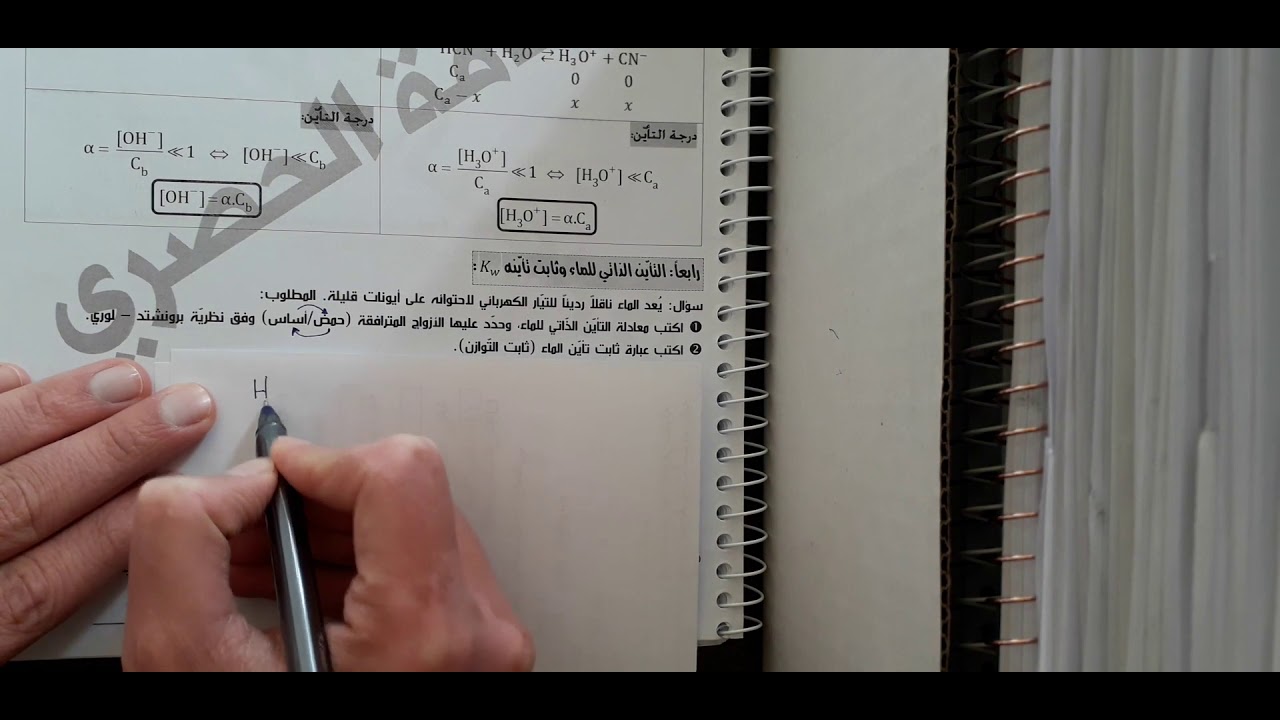 HCN + H₂O ⇄ H₃O⁺ + CN⁻
Cₐ 0 0
Cₐ − x x x
درجة التأيّن:
α = [H₃O⁺]/Cₐ ≪ 1 ⇔ [H₃O⁺] ≪ Cₐ
[H₃O⁺] = α.Cₐ
درجة التأيّن:
α = [OH⁻]/C_b ≪ 1 ⇔ [OH⁻] ≪ C_b
[OH⁻] = α.C_b
الحصري
رابعاً: التأيّن الذاتي للماء وثابت تأيّنه K_w :
سؤال: يُعد الماء ناقلاً رديئاً للتيّار الكهربائي لاحتوائه على أيونات قليلة. المطلوب:
❶ اكتب معادلة التأيّن الذّاتي للماء، وحدّد عليها الأزواج المترافقة (حمض/أساس) وفق نظريّة برونشتد – لوري.
❷ اكتب عبارة ثابت تأيّن الماء (ثابت التّوازن).
H